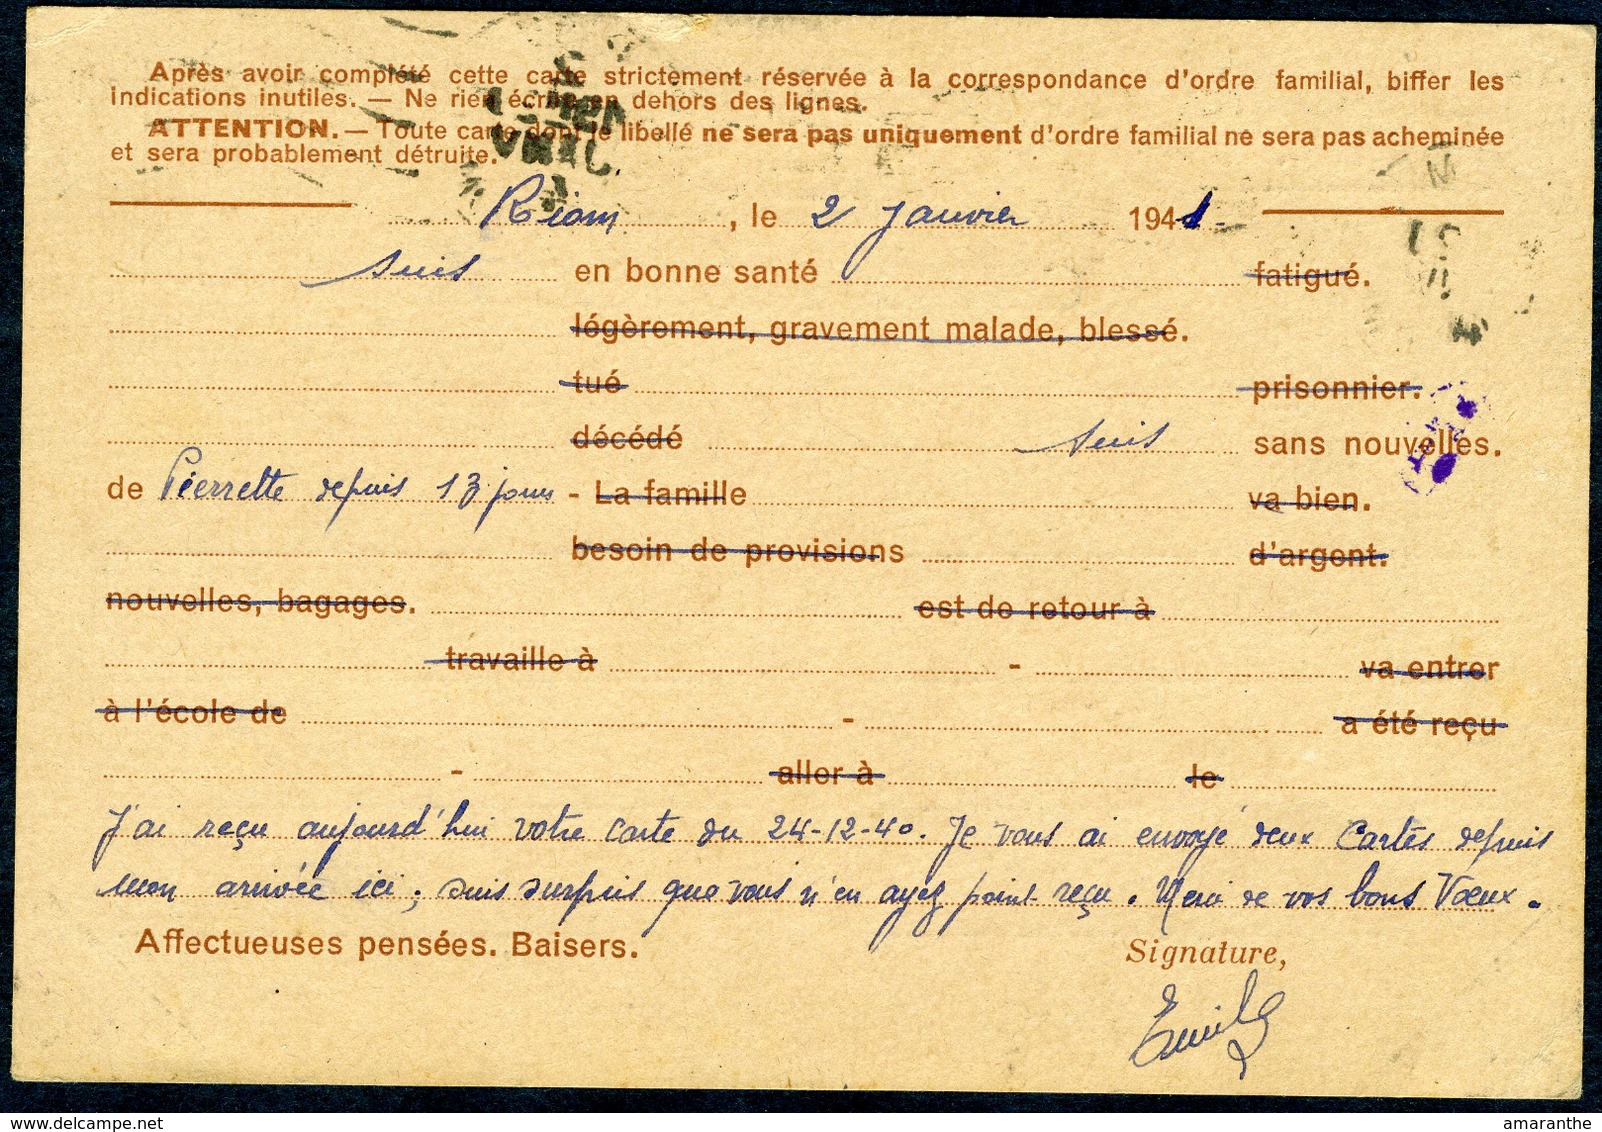 Après avoir complété cette carte strictement réservée à la correspondance d'ordre familial, biffer les
indications inutiles. — Ne rien écrire en dehors des lignes.
ATTENTION. — Toute carte dont le libellé ne sera pas uniquement d'ordre familial ne sera pas acheminée
et sera probablement détruite.
Riom, le 2 Janvier 1941
suis en bonne santé fatigué.
légèrement, gravement malade, blessé.
tué prisonnier.
décédé suis sans nouvelles.
de Pierrette depuis 13 jours - La famille va bien.
besoin de provisions d'argent.
nouvelles, bagages. est de retour à
travaille à - va entrer
à l'école de - a été reçu
- aller à le
J'ai reçu aujourd'hui votre carte du 24-12-40. Je vous ai envoyé deux Cartes depuis
mon arrivée ici; suis surpris que vous n'en ayez point reçu. Merci de vos bons Vœux.
Affectueuses pensées. Baisers. Signature,
Emile
www.delcampe.net amaranthe